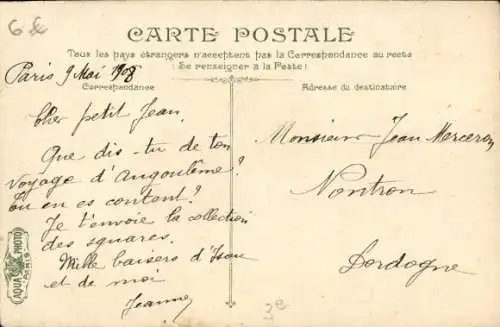 6 €
CARTE POSTALE
Tous les pays étrangers n'acceptent pas la Correspondance au recto
(Se renseigner à la Poste)
Paris 9 Mai 1908
Correspondance
Adresse du destinataire
Cher petit Jean,
Que dis-tu de ton
voyage d'Angoulême?
tu en es content?
Je t'envoie la collection
des squares.
Mille baisers d'
et de moi
Jeanne
Monsieur Jean Merceron
Nontron
Dordogne
AQUA PHOTO
PARIS
3e